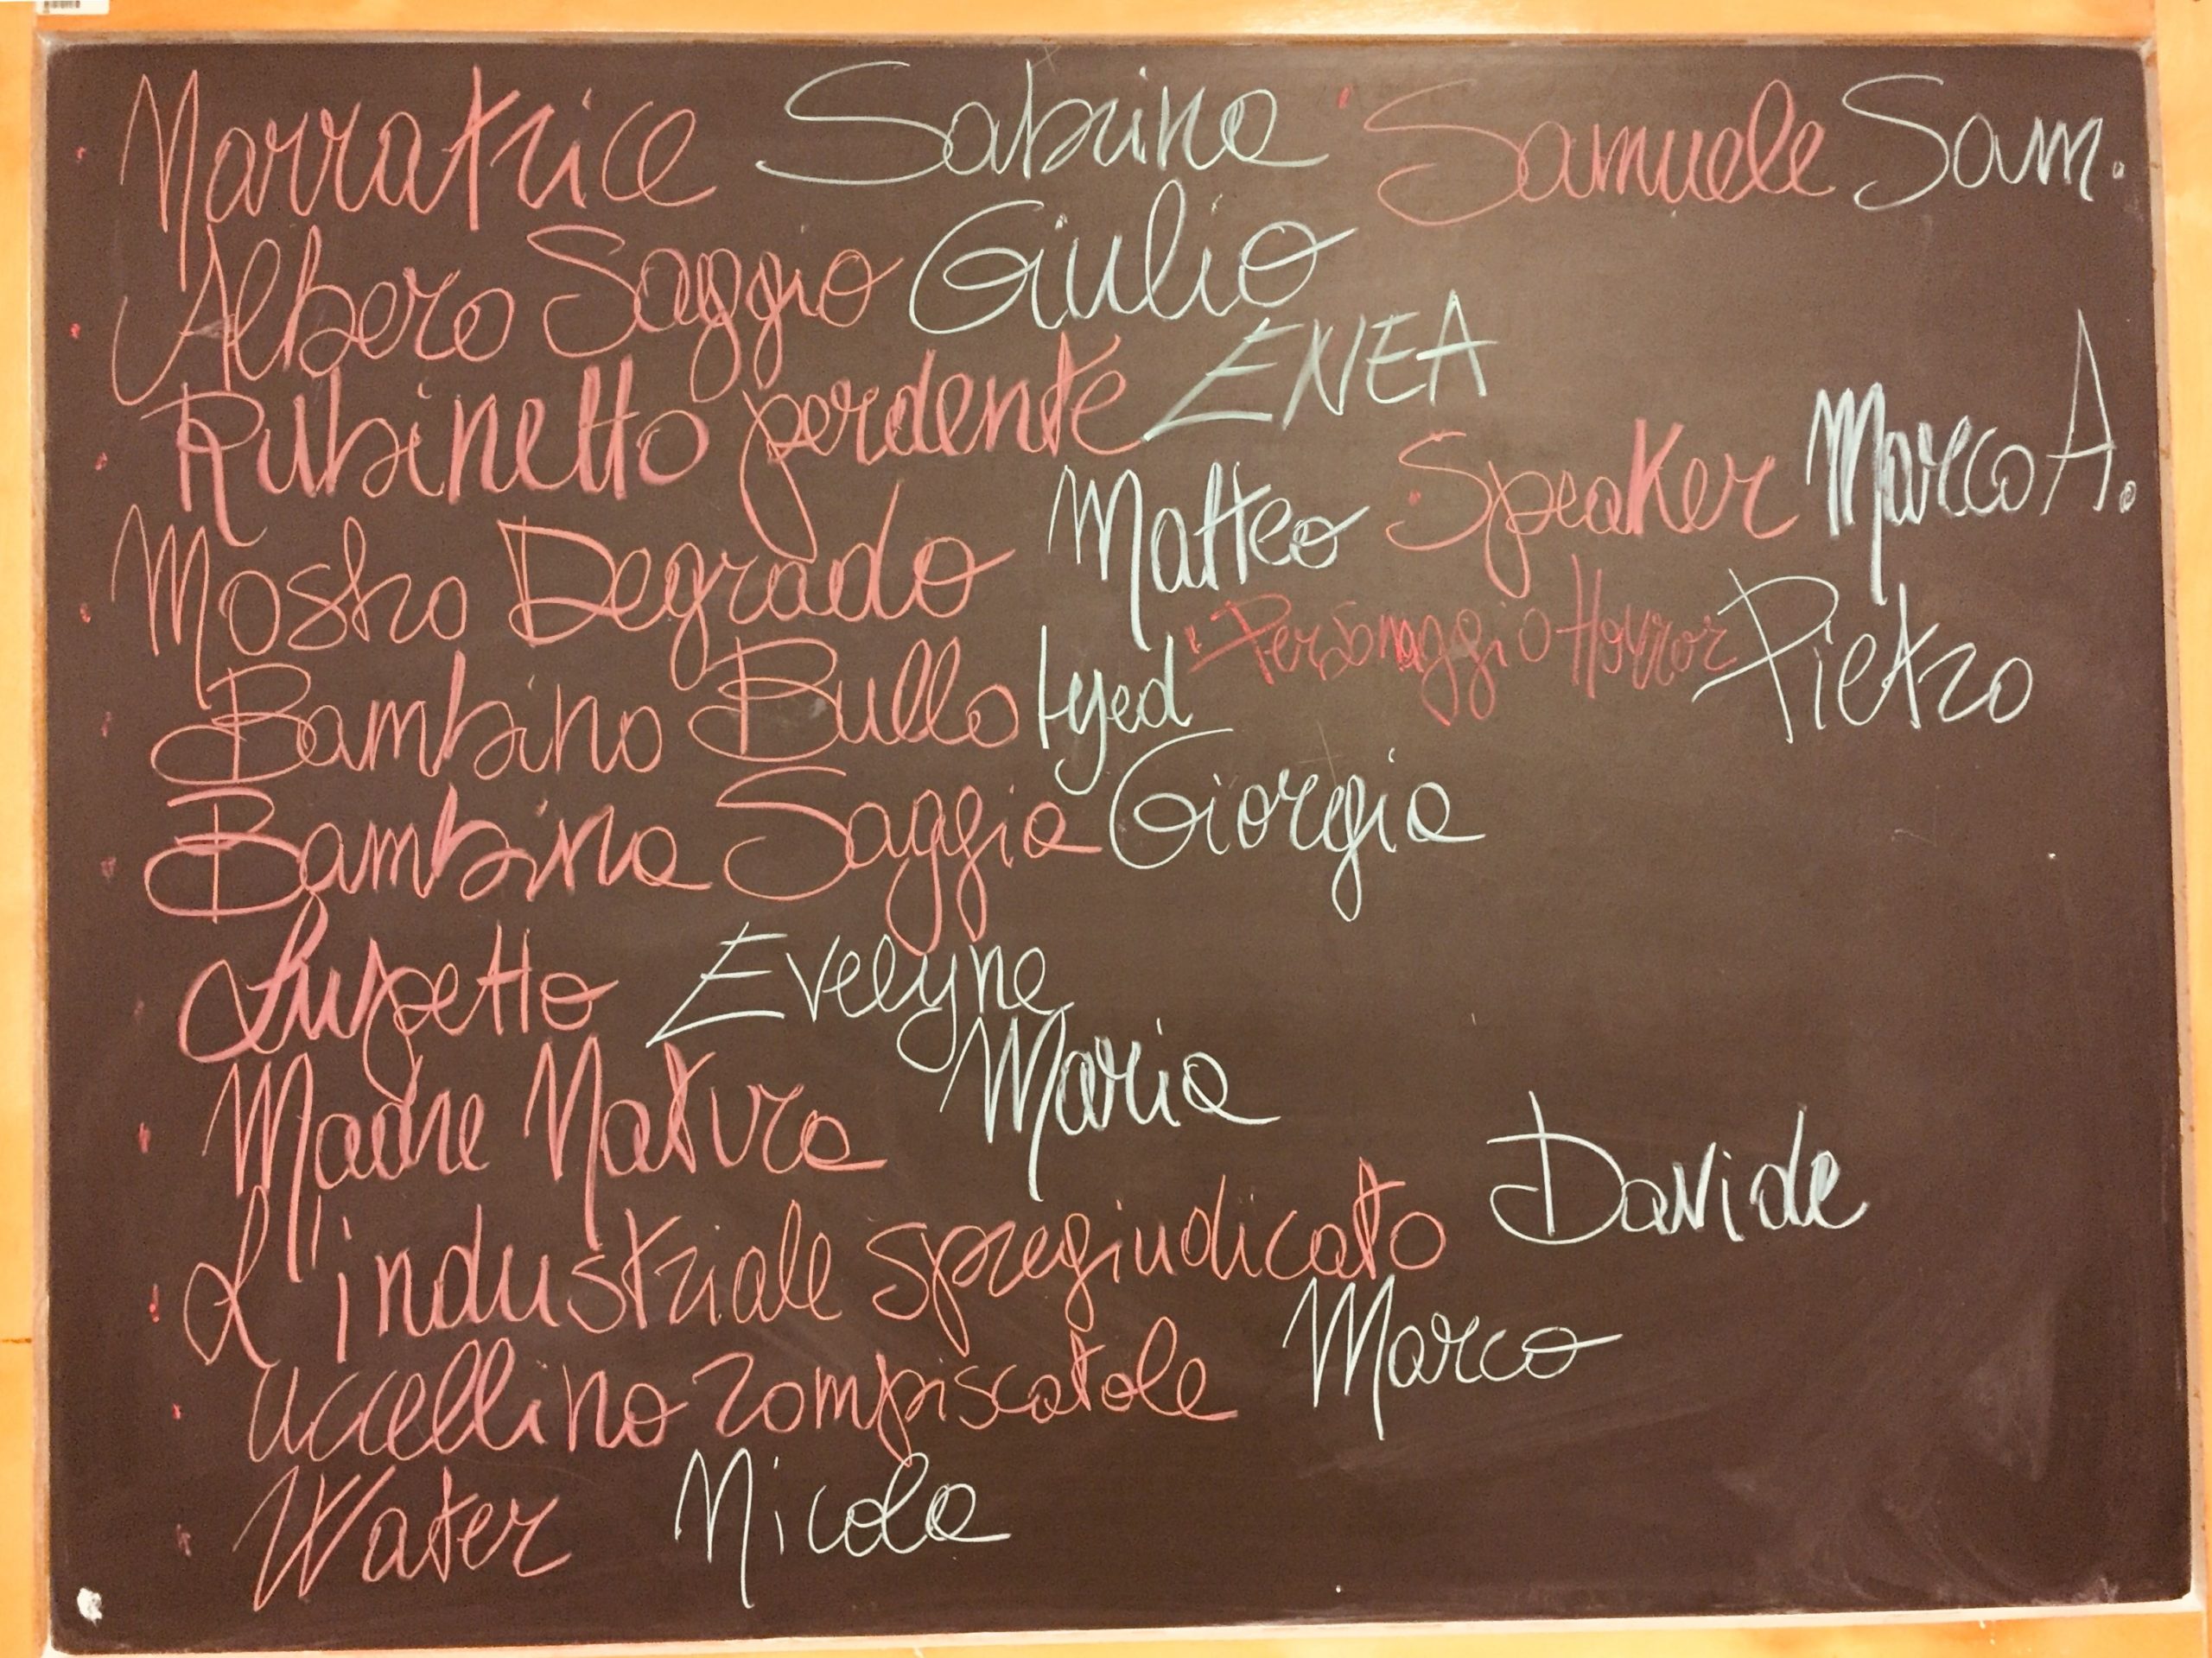 Narratrice Sabrina
Albero Saggio Giulio
Rubinetto perdente ENEA
Mostro Degrado Matteo
Bambino Bullo Iyed
Bambina Saggia Giorgia
Lupetto Evelyne
Madre Natura Maria
L'industriale spregiudicato Davide
Uccellino rompiscatole Marco
Water Nicola
Samuele Sam.
Speaker Marco A.
Personaggio Horror Pietro